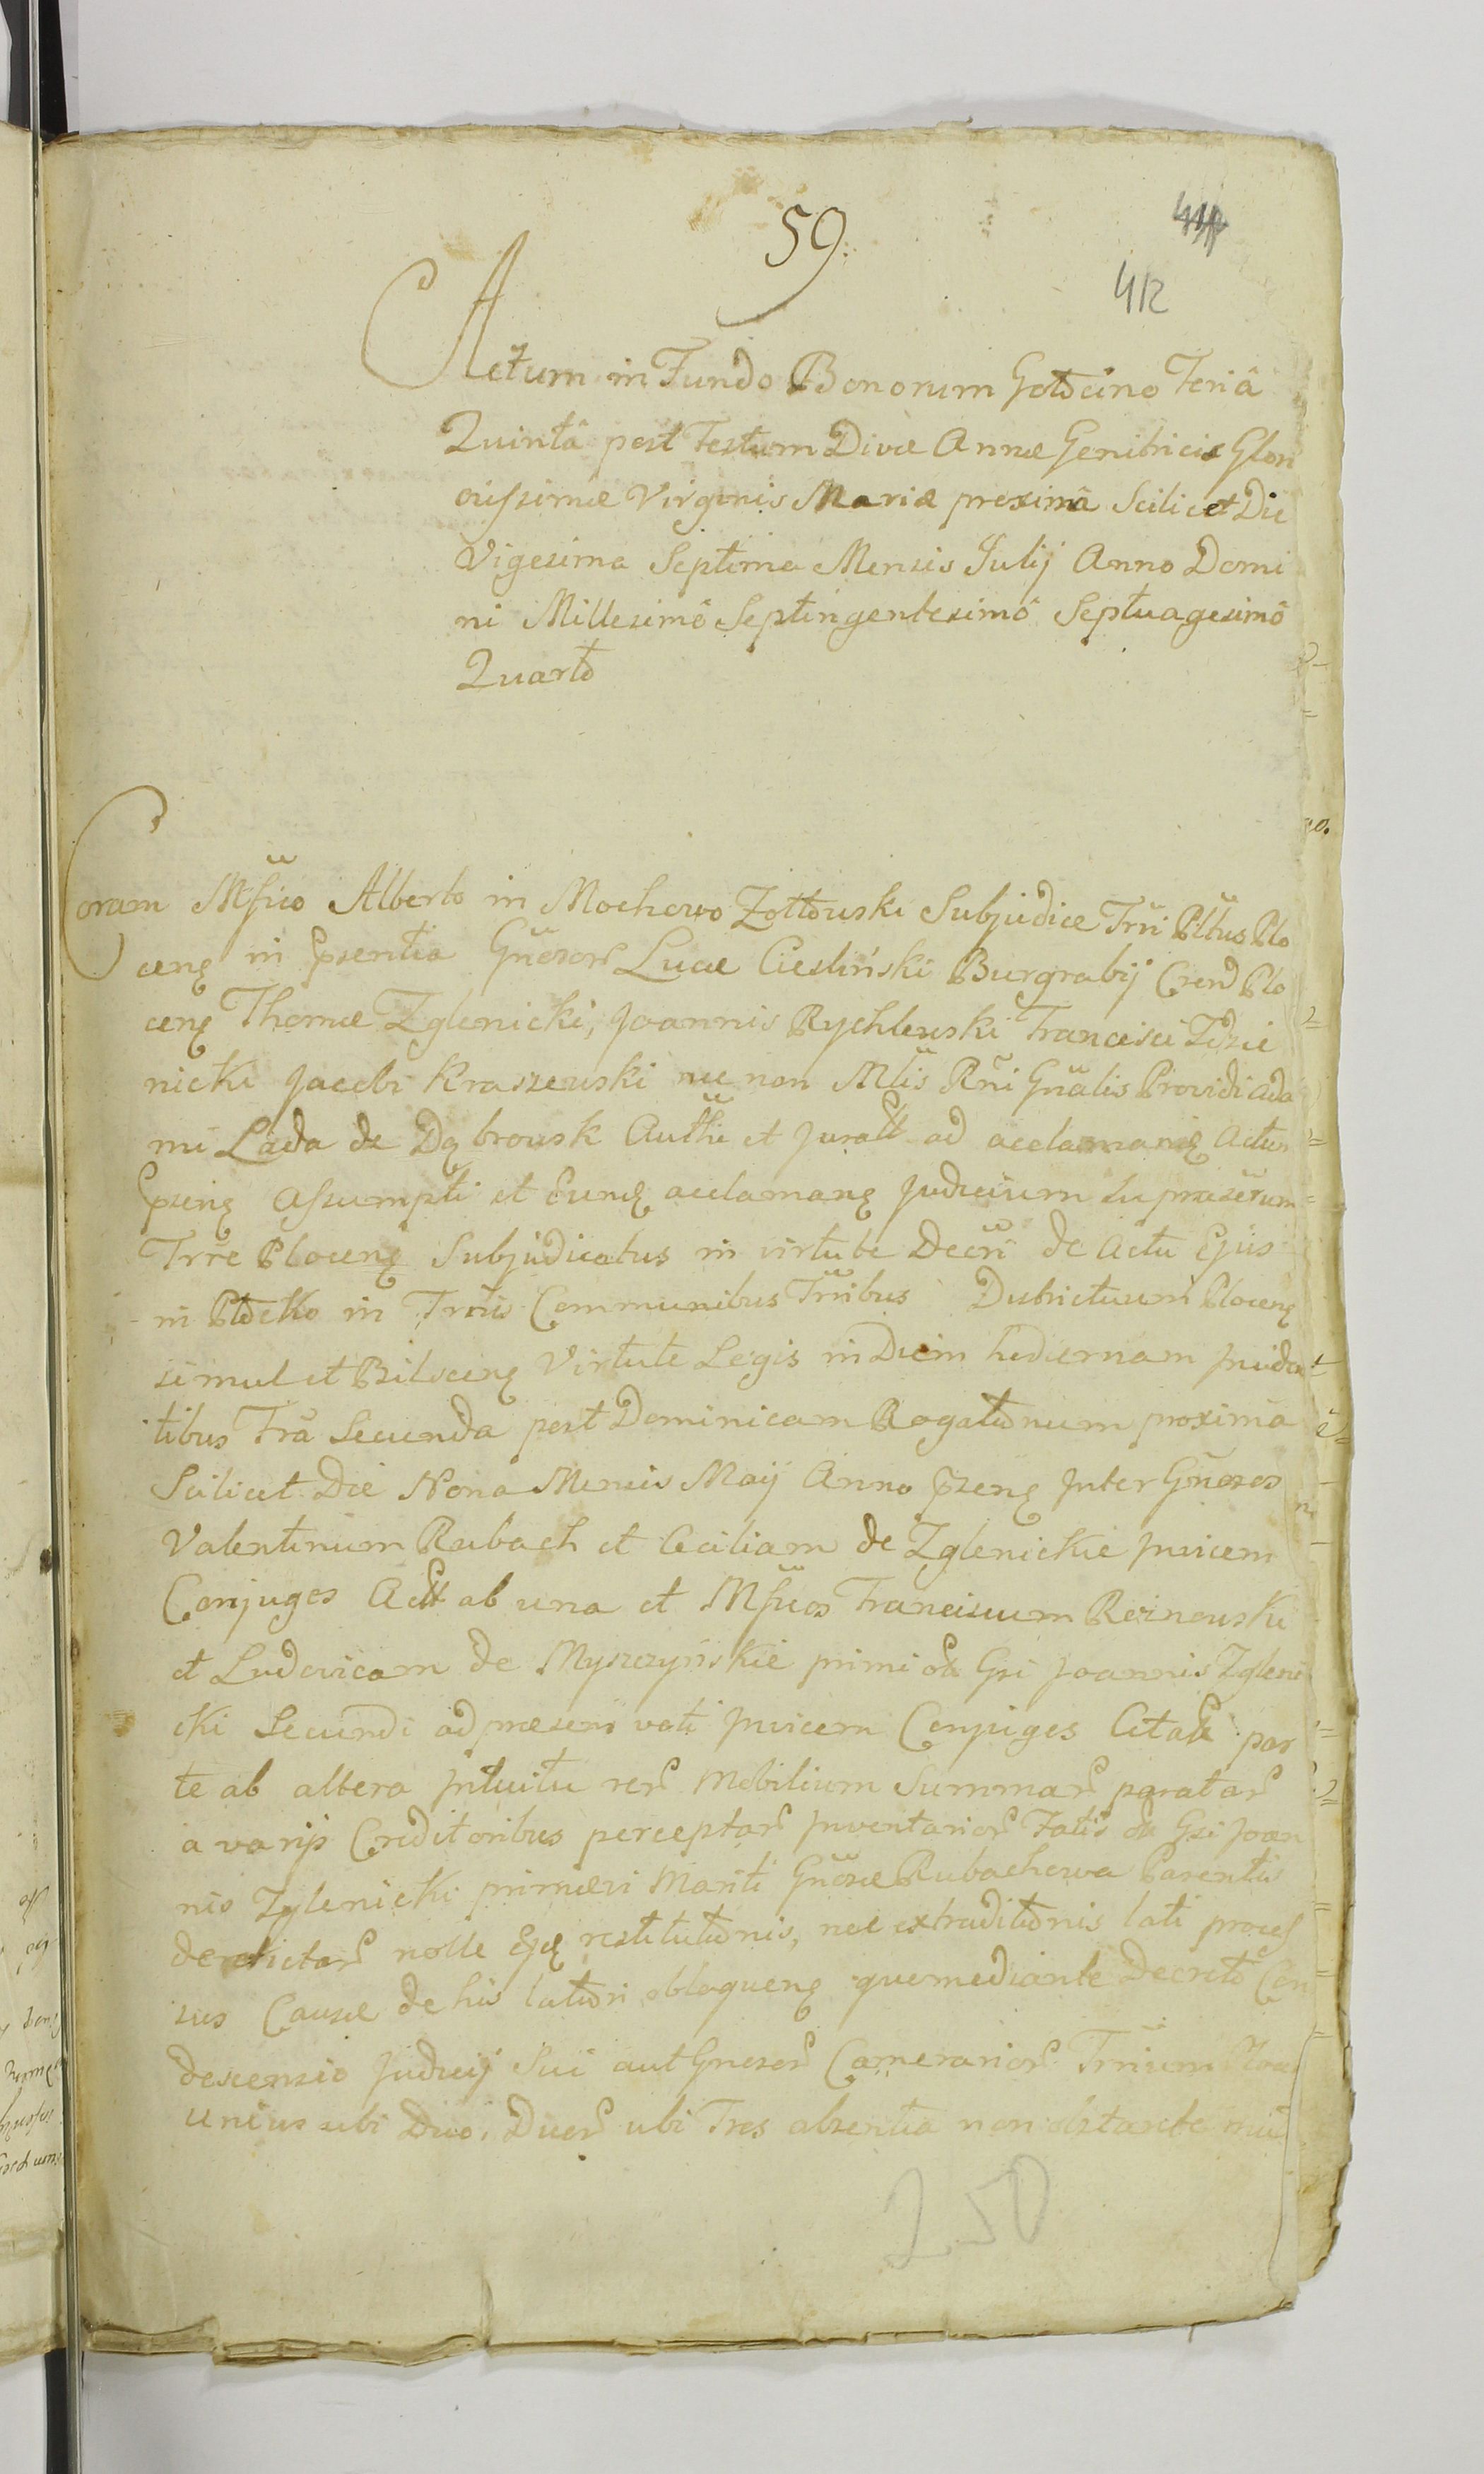 59.
412
Actum in Fundo Bonorum Gołocino Feriâ
Quintâ post Festum Divæ Annæ Genitricis Glori
oussimæ Virginis Mariæ proximâ Scilicet Die
Vigesima Septima Mensis Julij Anno Domi
ni Millesimô Septingentesimô Septuagesimô
Quarto
Coram Mfico Alberto in Mochowo Zołtowski Subjudice Trri Pltus Plo
ceng in Pzsentia Gnosor Lucæ Ciesliński Burgrabij Crend Plo
ceng Thomæ Zglenicki, Joannis Rychlewski Francisci
nicki Jacobi Kraszewski nec non Mlis Rni Gnalis Providi Ada
mi Lada de Dąbrowsk Authi et Juratt ad acclamang Actus
Pzseng Assumpti et Eung acclamang Judicium
Trre Ploceng Subjudicatus in virtute Decri de Actu Ejus
in Płocko in Trris Communibus Trribus Districtuum Ploceng
simul et Bilsceng Virtute Legis in Diem hodiernam
tibus Fra Secunda post Dominicam Rogationum proxima
Scilicet Die Nona Mensis Maij Anno Pzseng Inter Gnosos
Valentinum Rubach et Ceciliam de Zglenickie Invicem
Conjuges Actt ab una et Mficos Franciscum Rościszewski
et Ludovicam de Myszczyńskie primi olim Gsi Joannis Zgleni
cki Secundi ad præsens voti Invicem Conjuges Citat par
te ab altera Intuitu rer Mobilium Summar paratar
a varijs Creditoribus perceptar Inventarior Fatis olim Gsi Joan
nis Zglenicki primævi Mariti Gnosæ Rubachowa Parentis
derelictar nolle Ejq restitutionis, nec extraditionis lati proces
sus Causæ de his latiori obloqueng quemediante Decreto Con
descensio Judicij Sui aut Gnosor Camerarior Trrium
unius ubi Duo, Duor ubi Tres absentia non obstante
250